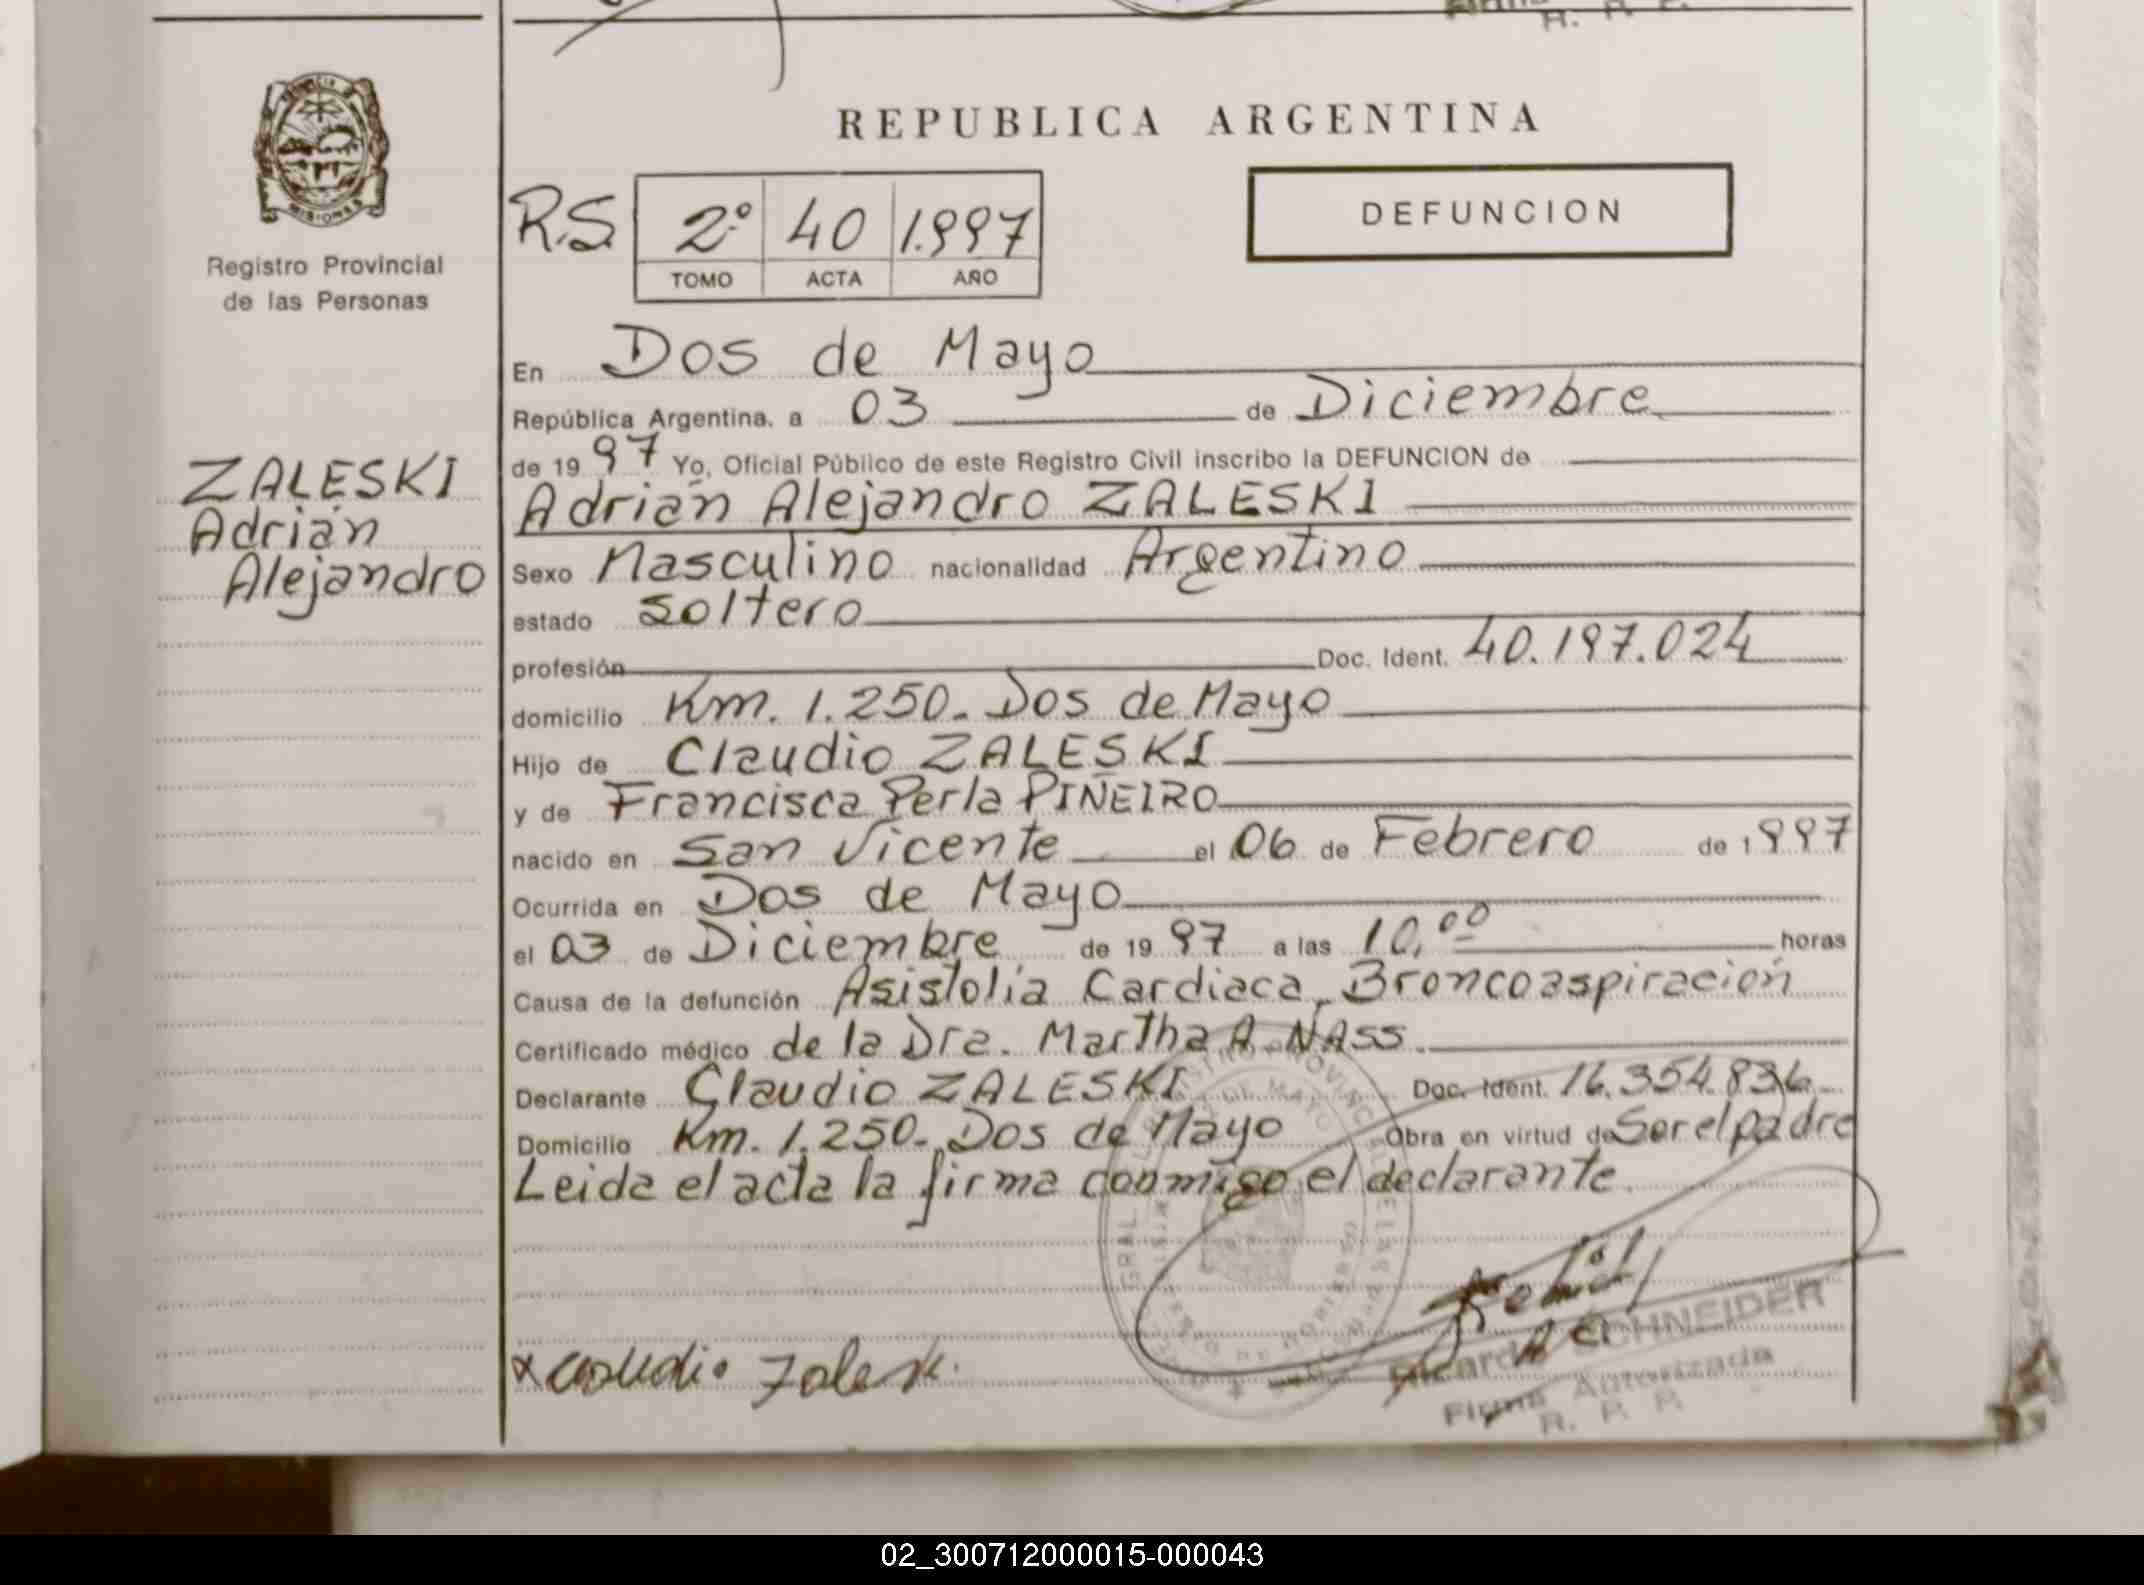 REPUBLICA ARGENTINA
PROVINCIA DE
MISIONES
Registro Provincial
de las Personas
R.S.
2º 40 1.997
TOMO ACTA AÑO
DEFUNCION
En Dos de Mayo
República Argentina, a 03 de Diciembre
de 1997 Yo, Oficial Público de este Registro Civil inscribo la DEFUNCION de
ZALESKI
Adrián
Alejandro
Adrián Alejandro ZALESKI
Sexo Masculino nacionalidad Argentino
estado soltero
profesión Doc. Ident. 40.197.024
domicilio Km. 1.250. Dos de Mayo
Hijo de Claudio ZALESKI
y de Francisca Perla PIÑEIRO
nacido en San Vicente el 06 de Febrero de 1997
Ocurrida en Dos de Mayo
el 03 de Diciembre de 1997 a las 10,00 horas
Causa de la defunción Asistolía Cardiaca, Broncoaspiración
Certificado médico de la Dra. Martha A. NASS.
Declarante Claudio ZALESKI Doc. Ident. 16.354.836
Domicilio Km. 1.250. Dos de Mayo Obra en virtud de Ser el padre
Leida el acta la firma conmigo el declarante.
x Claudio Zaleski
Ricardo SCHNEIDER
Firma Autorizada
R. P. P.
02_300712000015-000043